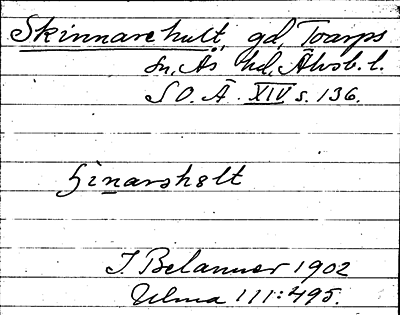 Skinnarehult, gd, Toarps
sn, Ås hd, Älvsb. l.
S O. Ä. XIV s. 136.
ʃinarshält
J. Belanner 1902
Ulma 111:495.